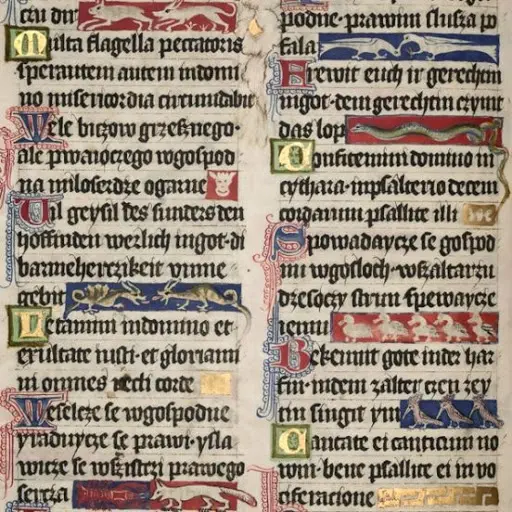 czu dw
Multa flagella peccatoris
sperantem autem indomi
no misericordia circumdabit
Wele biczow grzesznego·
ale pwaiōcego wgospod
na milosierdze ogarne
Uil geysil des sunders den
hoffinden werlich ingot·di
barmeherczikeit vmme
gebit
Letamini indomino et
exultate iusti·et gloriami
ni omnes recti corde
Weselcze se wgospodne
yraduycze se prawi·ysla
wicze se wszistczi prawego
sercza
podne·prawim slusza po
fala
Frewit euch ir gerechtin
ingot·dem gerechtin czymt
das lop
Confitemini domino in
cythara·inpsalterio decem
cordarum psallite illi
Spowadaycze se gospod
ni wgōsloch·wszaltarzu
dzesōczy strun spewaycze
iemu
Bekennit gote inder har
fin·indem zalter czen sey
tin singit ym
Cantate ei canticum no
wm·bene psallite ei in vo
ciferacione